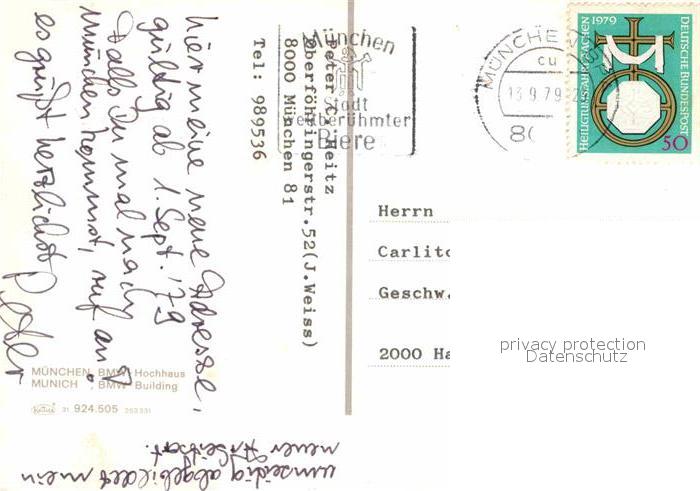 hier meine neue Adresse,
gültig ab 1. Sept. '79
Falls Du mal nach
München kommst, ruf an!
es grüßt herzlichst
Peter
umseitig abgebildet mein
neuer Arbeitsort.
Peter J. Heitz
Oberföhringerstr.52(J.Weiss)
8000 München 81
Tel: 989536
München
Stadt
weltberühmter
Biere
MÜNCHE
cu
13.9.79
80
HEILIGTUMSFAHRT AACHEN 1979
DEUTSCHE BUNDESPOST
50
Herrn
Carlito
Geschw.
2000 Ha
privacy protection
Datenschutz
MÜNCHEN BMW Hochhaus
MUNICH BMW Building
Krüger 31 924.505 253 331